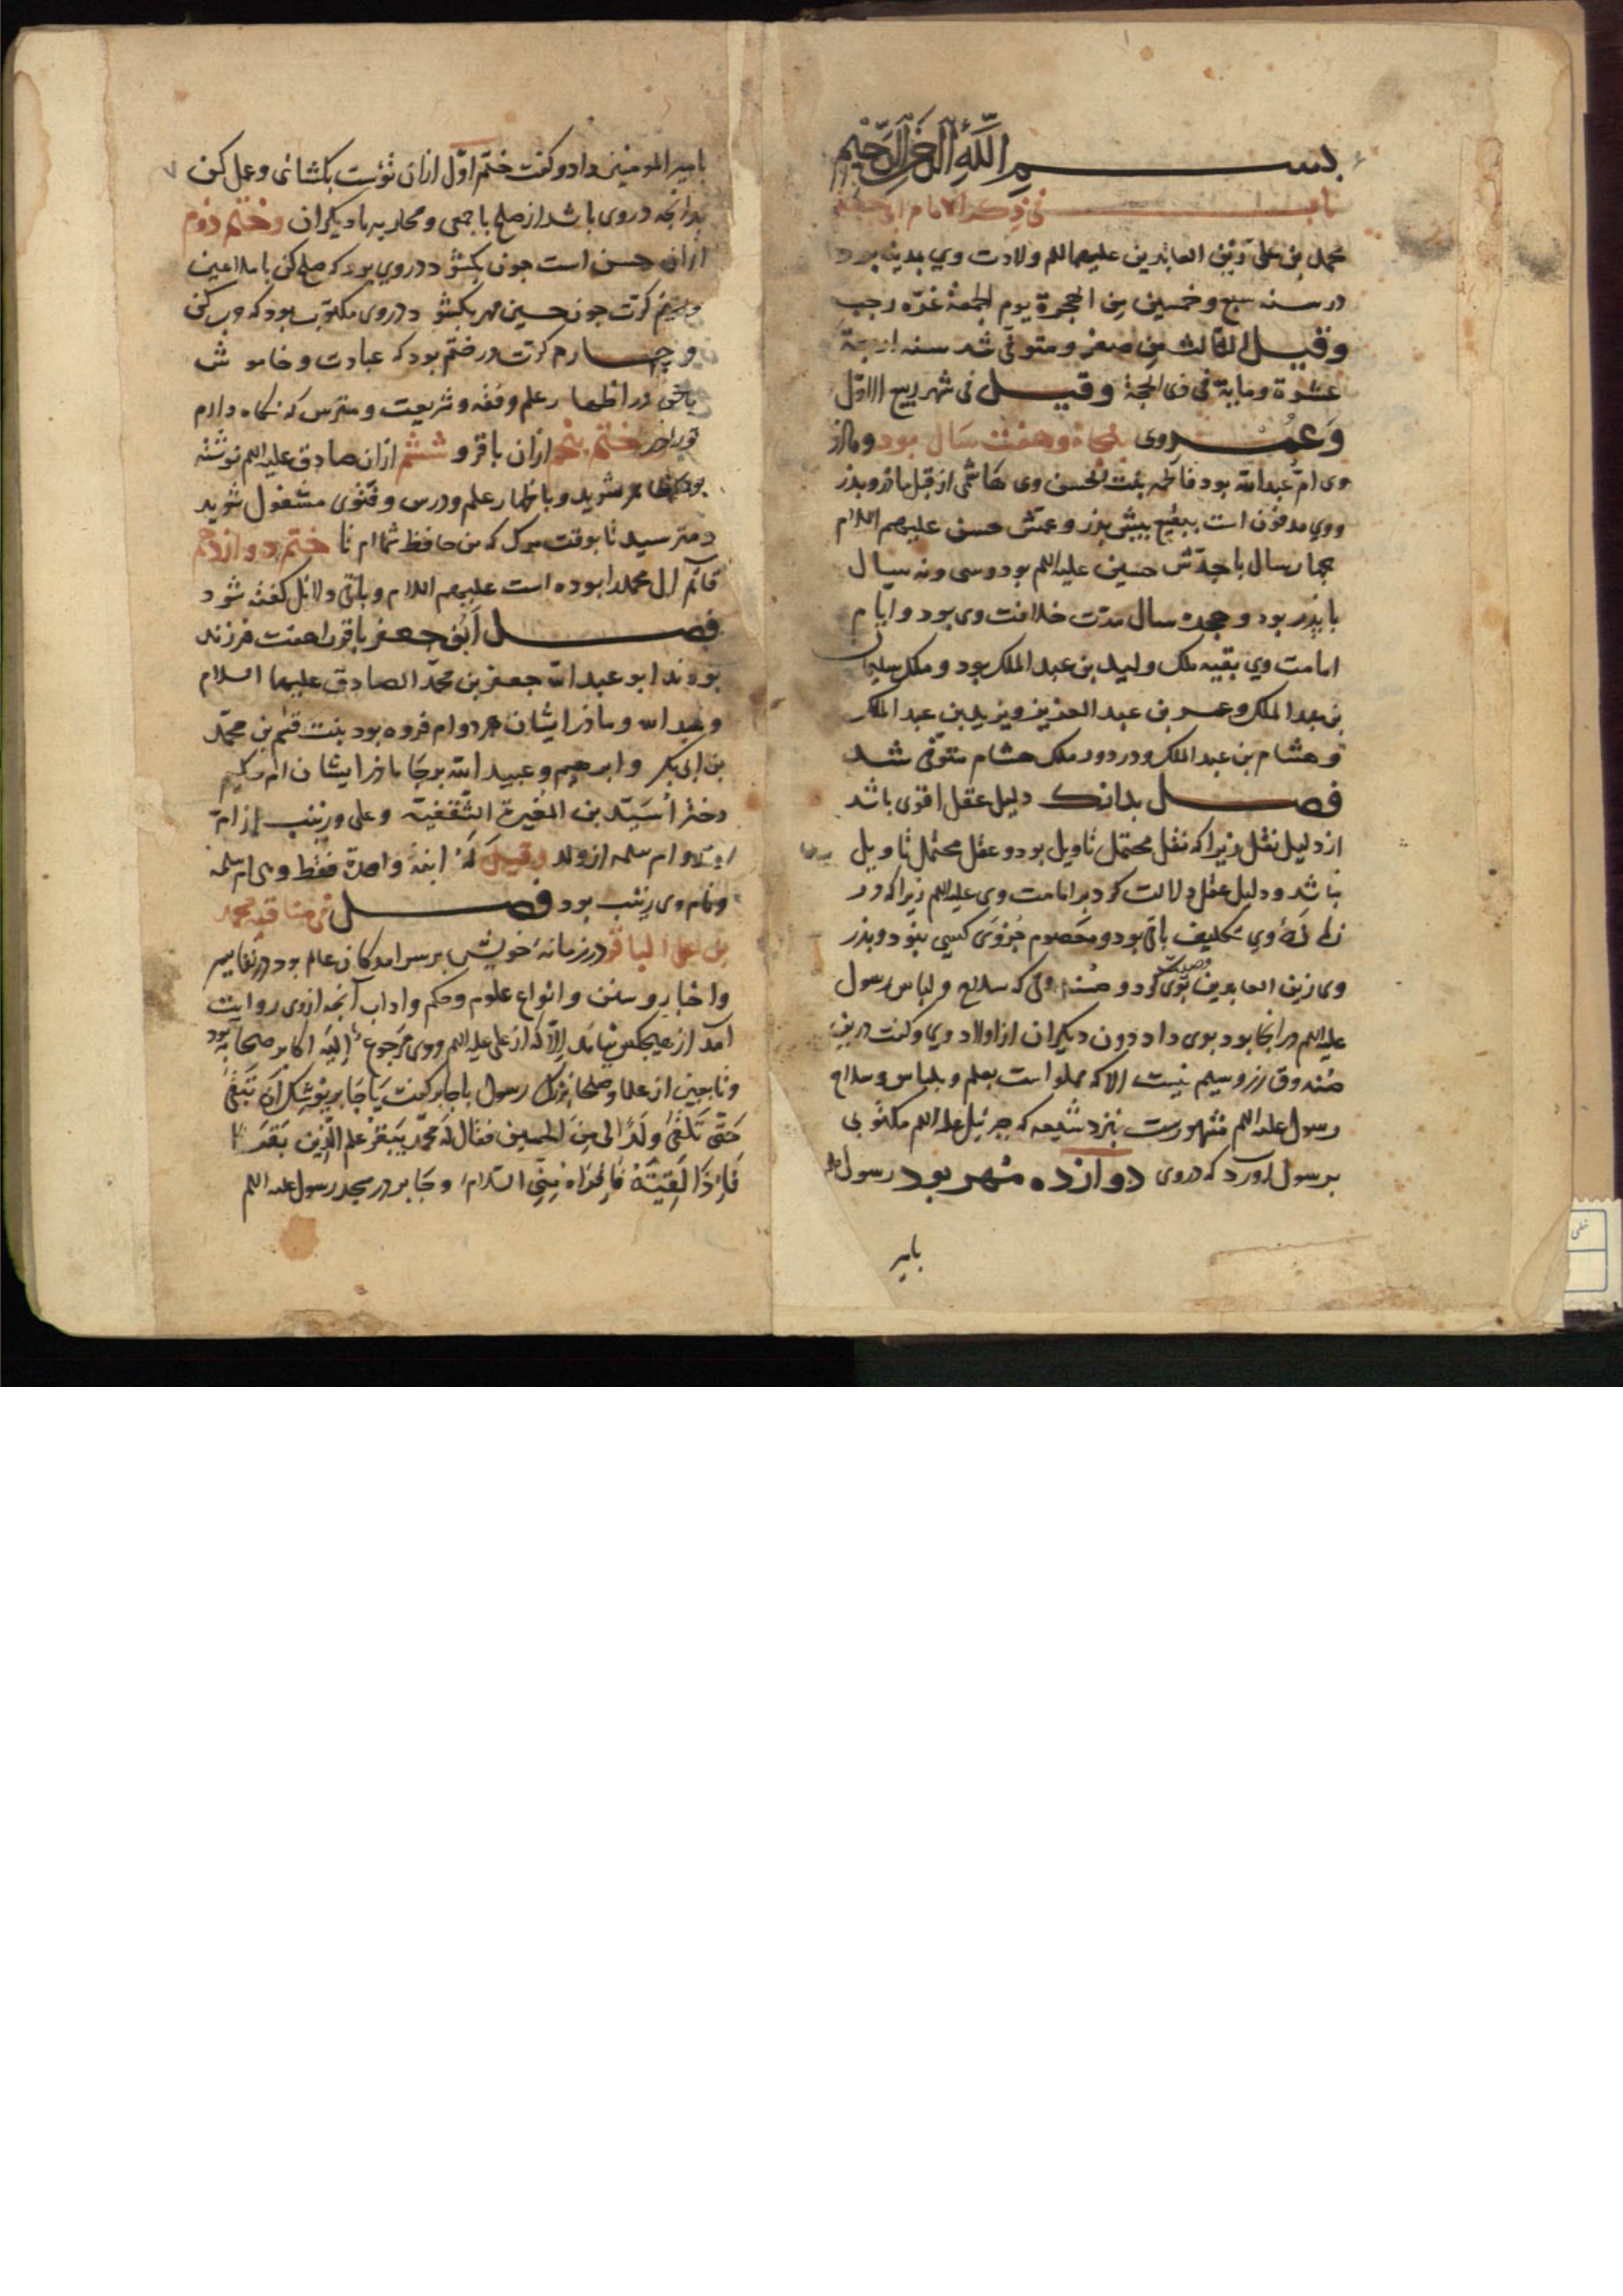 بسم الله الرحمن الرحیم
باب فی ذکر الامام ابی جعفر
محمد بن علی زین العابدین علیهما السلم ولادت وی بمدینه بود
در سنه سبع وخمسین من الهجرة یوم الجمعة غرّه رجب
وقیل الثالث من صفر ومتوفی شد سنه اربعة
عشرة ومایة فی ذی الحجة وقیل فی شهر ربیع الاوّل
وعمر وی پنجاه وهفت سال بود ومادر
وی امّ عبدالله بود فاطمه بنت الحسن وی هاشمی از قبل مادر وپذر
ووی مدفون است ببقیع پیش پذر وعمّش حسن علیهم السلام
چهار سال با جدّش حسین علیه السلم بود وسی ونه سال
با پذر بود وهجده سال مدّت خلافت وی بود وایّام
امامت وی بقیه ملک ولید بن عبد الملک بود وملک سلیمان
بن عبد الملک وعمر بن عبد العزیز ویزید بن عبد الملک
وهشام بن عبد الملک ودر دور ملک هشام متوفّی شد
فصل بدانک دلیل عقل اقوی باشد
از دلیل نقل زیرا که نقل محتمل تاویل بود وعقل محتمل تاویل
نباشد ودلیل عقل دلالت کرد بر امامت وی علیه السلم زیرا که در
زمانهٔ وی تکلیف باقی بود ومعصوم جز وی کسی نبود وپذر
وی زین العابدین وصیّت بوی کرد و صندوقی که سلاح ولباس رسول
علیه السلم در آنجا بود بوی داد دون دیگران از اولاد وی وگفت درین
صندوق زر وسیم نیست الا که مملو است بعلم ولباس وسلاح
رسول علیه السلم مشهورست بنزد شیعه که جبرئیل علیه السلم مکتوبی
بر رسول آورد که دروی دوازده مهر بود رسول
بامیر
بامیر المومنین داد وگفت ختم اوّل ازان تؤست بگشائی وعمل کن
بدانچه در وی باشد از صلح با جمعی ومحاربه با دیگران وختم دوم
ازان حسن است چون بگشود در وی بود که صلح کن با ملاعین
کرّت چون حسین مهر بگشود در وی مکتوب بود که حرب کن
وچهارم کرّت در ختم بود که عبادت وخاموش
در اظهار علم وفقه وشریعت ومترس که نگاه دارم
ختم پنجم ازان باقر وششم ازان صادق علیه السلم نوشته
بود شوید وباظهار علم ودرس وفتوی مشغول شوید
ومترسید تا بوقت مرگ که من حافظ شماام تا ختم دوازدهم
قائم ال محمد را بوده است علیهم السلام وباقی دلائل گفته شود
فصل ابو جعفر باقر را هفت فرزند
بودند ابو عبد الله جعفر بن محمد الصادق علیهما السلام
وعبد الله وماذر ایشان هر دو ام فروه بود بنت قثم بن محمّد
بن ابی بکر وابرهیم وعبید الله بر جا ماذر ایشان ام حکیم
دختر اُسَیّد بن المُغیرة الثَّقفیة وعلی وزینب از امّ
ولد وام سلمه از ولد وقیل لهٔ ابنة واحدة فقط وهی ام سلمه
ونام وی زینب بود فصل فی مناقب محمد
بن علی الباقر در زمانهٔ خویش بر سرامدگان عالم بود در تفاسیر
واخبار وسنن وانواع علوم وحکم واداب آنچه ازوی روایت
آمد از هیچکس نیامد اِلّا که از علی علیه السلم ووی مرجوع اِلَیه اکابر صحابه بود
وتابعین از علما وصلحا بزرگ رسول با جابر گفت یا جابر یوشک ان تبقی
حَتّی تَلقی ولدًا لی من الحسین فقال له محمّد یبقر علم الدّین بقرًا
فَاِذا لَقِیتَهُ فَاقراه مِنّی السَّلام وجابر در مسجد رسول علیه السلم